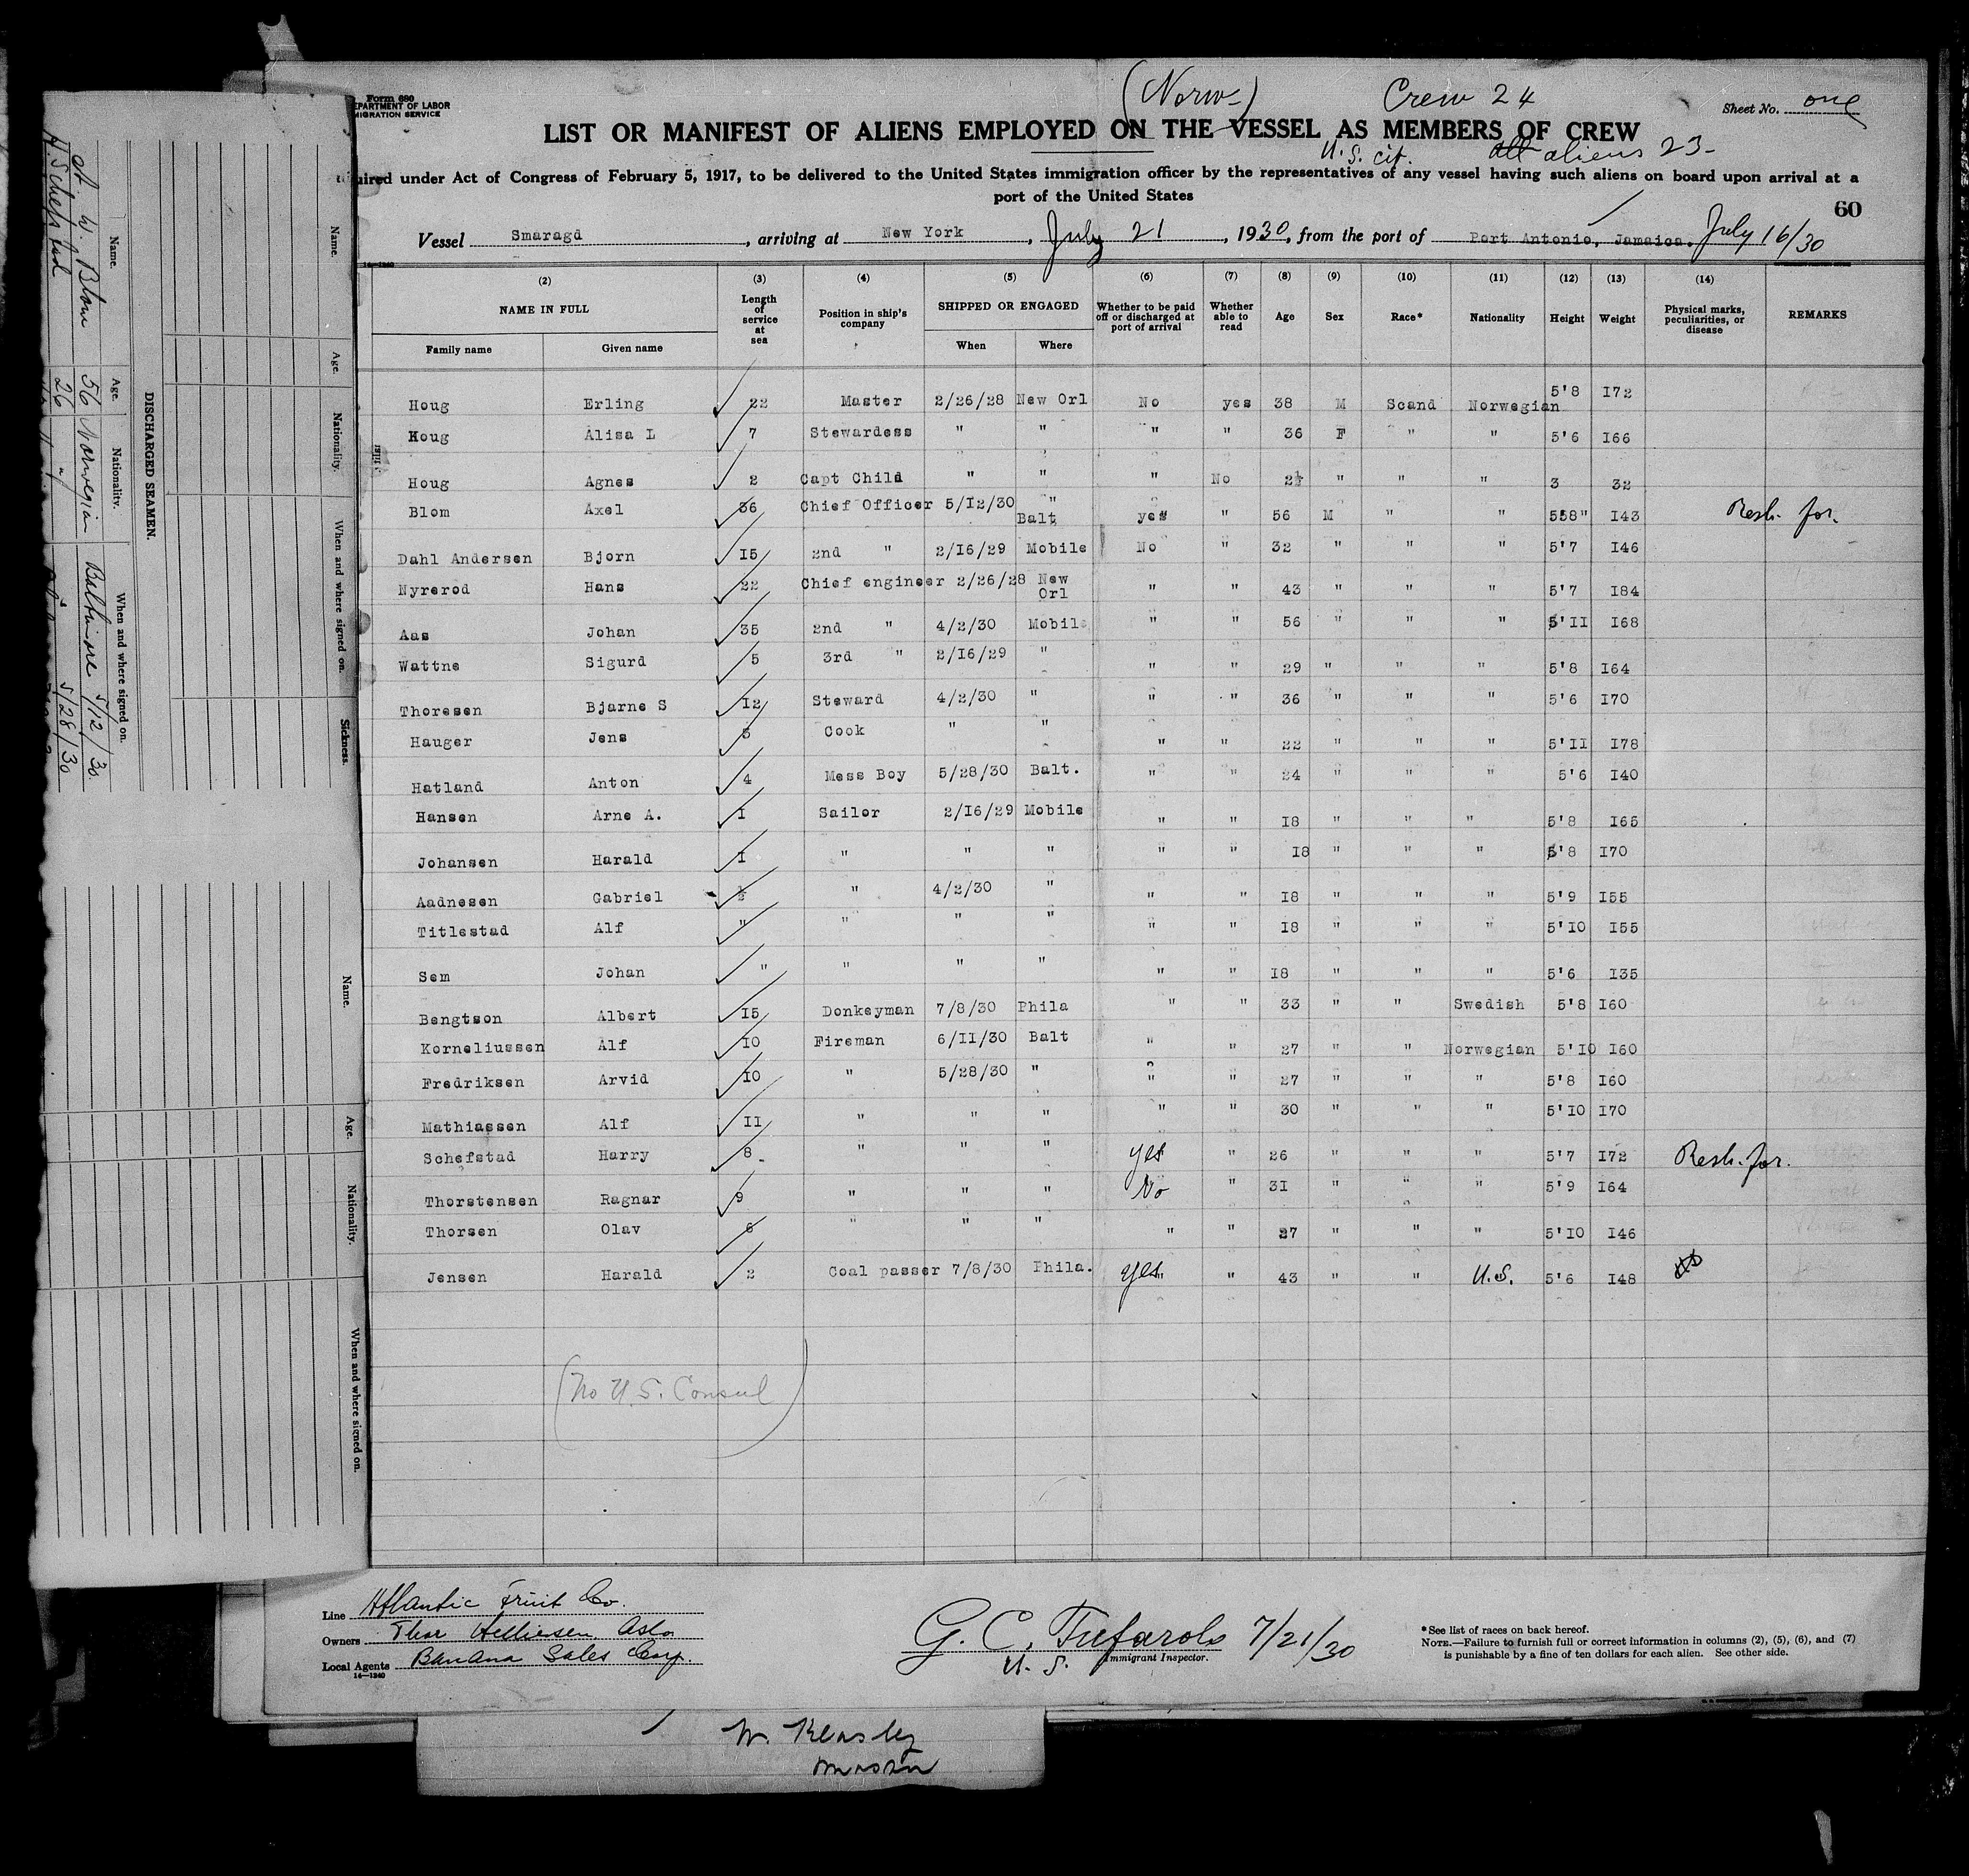 Form 680
DEPARTMENT OF LABOR
IMMIGRATION SERVICE
(Norw-)
Crew 24
Sheet No. one
LIST OR MANIFEST OF ALIENS EMPLOYED ON THE VESSEL AS MEMBERS OF CREW
U.S. cit. all aliens 23-
uired under Act of Congress of February 5, 1917, to be delivered to the United States immigration officer by the representatives of any vessel having such aliens on board upon arrival at a
port of the United States
60
Vessel Smaragd, arriving at New York, July 21, 1930, from the port of Port Antonio, Jamaica. July 16/30
14-1240
(2) (3) (4) (5) (6) (7) (8) (9) (10) (11) (12) (13) (14)
NAME IN FULL
Family name Given name
Length of service at sea
Position in ship's company
SHIPPED OR ENGAGED
When Where
Whether to be paid off or discharged at port of arrival
Whether able to read
Age Sex Race* Nationality Height Weight
Physical marks, peculiarities, or disease
REMARKS
Houg Erling 22 Master 2/26/28 New Orl No yes 38 M Scand Norwegian 5'8 I72
Houg Alisa L 7 Stewardess " " " " 36 F " " 5'6 I66
Houg Agnes 2 Capt Child " " " No 2½ " " " 3 32
Blom Axel 36 Chief Officer 5/I2/30 " Balt yes " 56 M " " 558" I43 Resh. for.
Dahl Andersen Bjorn I5 2nd " 2/I6/29 Mobile No " 32 " " " 5'7 I46
Nyrerod Hans 22 Chief engineer 2/26/28 New Orl " " 43 " " " 5'7 I84
Aas Johan 35 2nd " 4/2/30 Mobile " " 56 " " " 5'II I68
Wattne Sigurd 5 3rd " 2/I6/29 " " " 29 " " " 5'8 I64
Thoresen Bjarne S I2 Steward 4/2/30 " " " 36 " " " 5'6 I70
Hauger Jens 5 Cook " " " " 22 " " " 5'II I78
Hatland Anton 4 Mess Boy 5/28/30 Balt. " " 24 " " " 5'6 I40
Hansen Arne A. I Sailor 2/I6/29 Mobile " " I8 " " " 5'8 I65
Johansen Harald I " " " " " I8 " " " 5'8 I70
Aadnesen Gabriel ½ " 4/2/30 " " " I8 " " " 5'9 I55
Titlestad Alf " " " " " " I8 " " " 5'I0 I55
Sem Johan " " " " " " I8 " " " 5'6 I35
Bengtson Albert I5 Donkeyman 7/8/30 Phila " " 33 " " Swedish 5'8 I60
Korneliussen Alf I0 Fireman 6/II/30 Balt " " 27 " " Norwegian 5'I0 I60
Fredriksen Arvid I0 " 5/28/30 " " " 27 " " " 5'8 I60
Mathiassen Alf II " " " " " 30 " " " 5'I0 I70
Schefstad Harry 8 " " " yes " 26 " " " 5'7 I72 Resh. for.
Thorstensen Ragnar 9 " " " No " 3I " " " 5'9 I64
Thorsen Olav 6 " " " " " 27 " " " 5'I0 I46
Jensen Harald 2 Coal passer 7/8/30 Phila. yes " 43 " " U.S. 5'6 I48
(No U.S. Consul)
Line Atlantic Fruit Co.
Owners Thor
Local Agents Banana Sales Corp.
14-1240
G. C. Tufarolo 7/21/30
U. S. Immigrant Inspector.
*See list of races on back hereof.
NOTE.—Failure to furnish full or correct information in columns (2), (5), (6), and (7)
is punishable by a fine of ten dollars for each alien. See other side.
DISCHARGED SEAMEN.
Name. Age. Nationality. When and where signed on. Sickness.
Name. Age. Nationality. When and where signed on.
W. Blom 56 Norwegian Baltimore 5/12/30
H Schefstad 26 " " 5/28/30
Name. Age. Nationality. When and where signed on.
W.